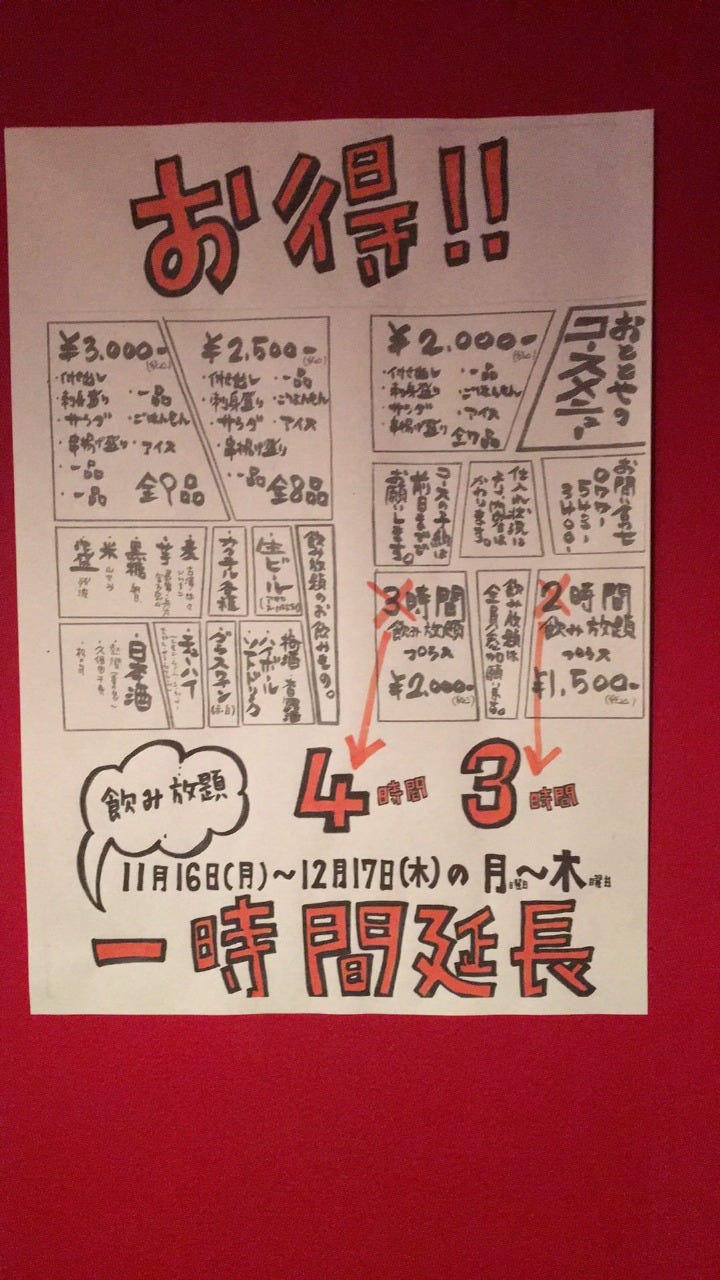 お得!!
おととやの
コースメニュー
¥2,000-
(税込)
・付き出し
・刺身盛り
・サラダ
・串揚げ盛り
・一品
・ごはんもん
・アイス
全7品
¥2,500-
(税込)
・付き出し
・刺身盛り
・サラダ
・串揚げ盛り
・一品
・一品
・ごはんもん
・アイス
全8品
¥3,000-
(税込)
・付き出し
・刺身盛り
・サラダ
・串揚げ盛り
・一品
・一品
・一品
・ごはんもん
・アイス
全9品
お問い合わせ
仕入れ状況に
かわります。
コースの予約は
前日までで
お願いします。
2時間
飲み放題
プラス
¥1,500-
(税込)
飲み放題は
全員参加願います。
3時間
飲み放題
プラス
¥2,000-
(税込)
飲み放題のお飲みもの。
・生ビール
・梅酒
・ハイボール
・ソフトドリンク
・カクテル各種
・グラスワイン
(赤・白)
・麦
・芋
・黒糖
・米
・チューハイ
・日本酒
3時間
4時間
飲み放題
11月16日(月)〜12月17日(木)の月曜日〜木曜日
一時間延長